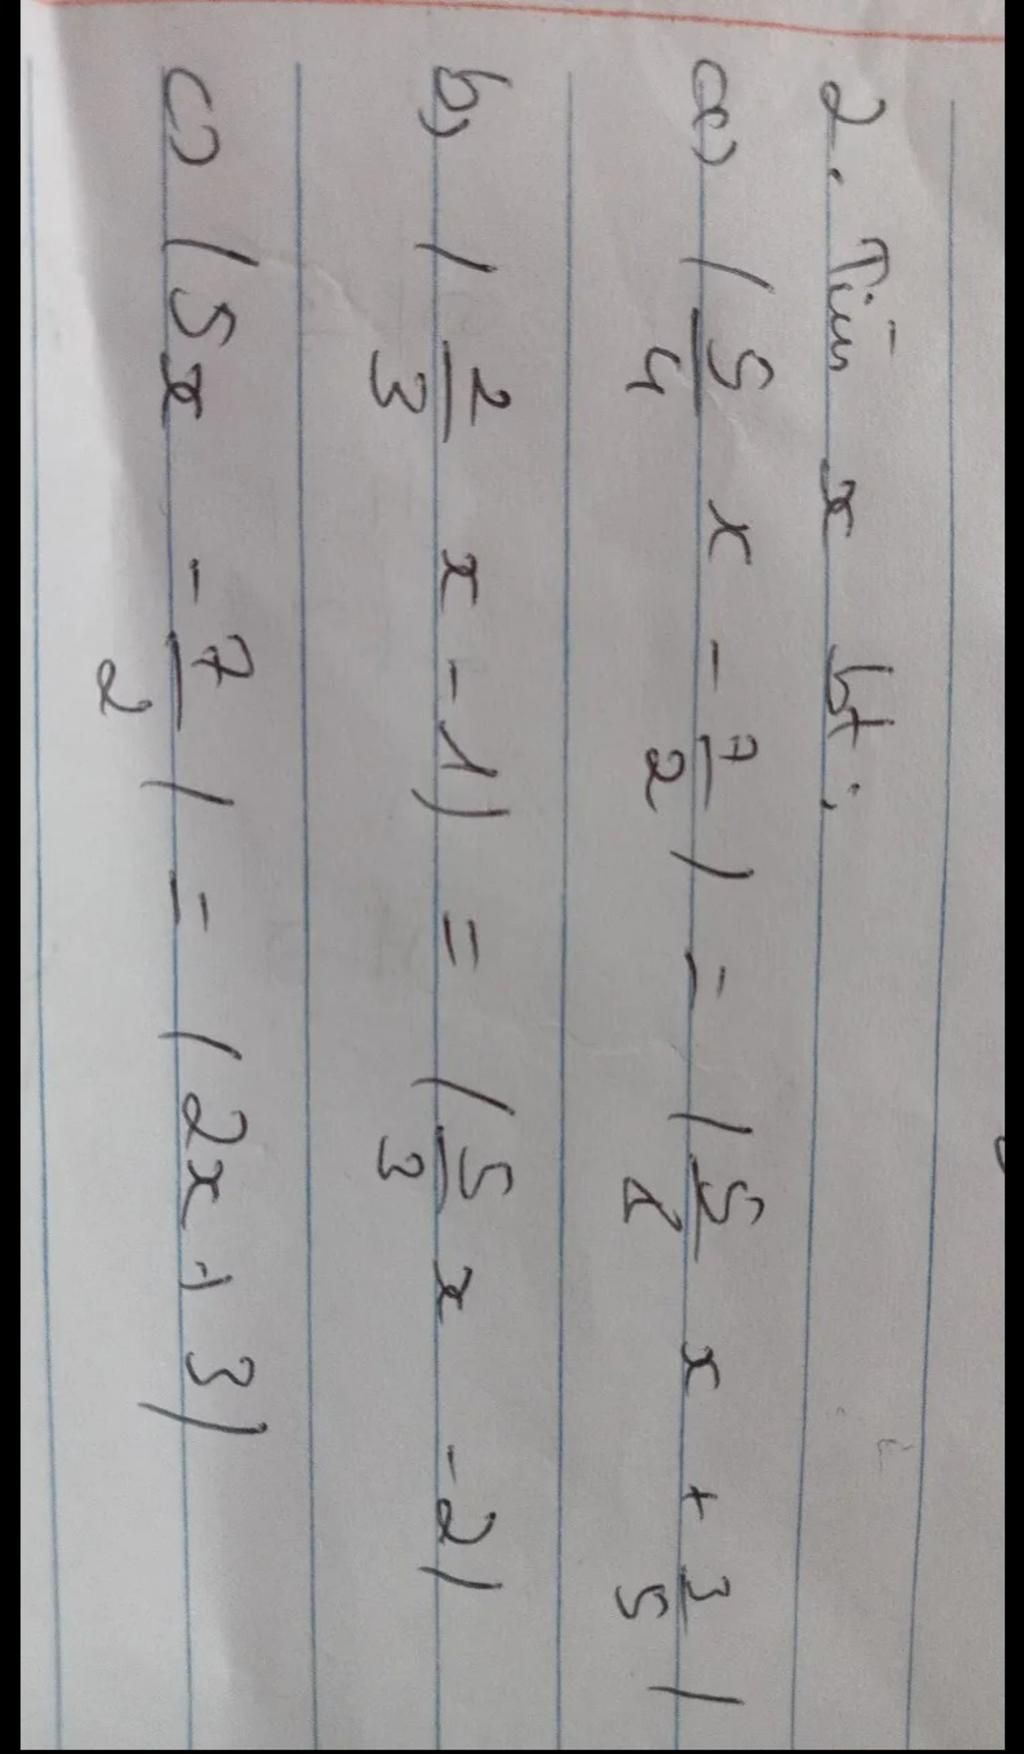 2. Tìm x bt:
a) |5/4 x - 7/2| = |5/2 x + 3/5|
b) |2/3 x - 1| = |5/3 x - 2|
c) |5x - 7/2| = |2x + 3|